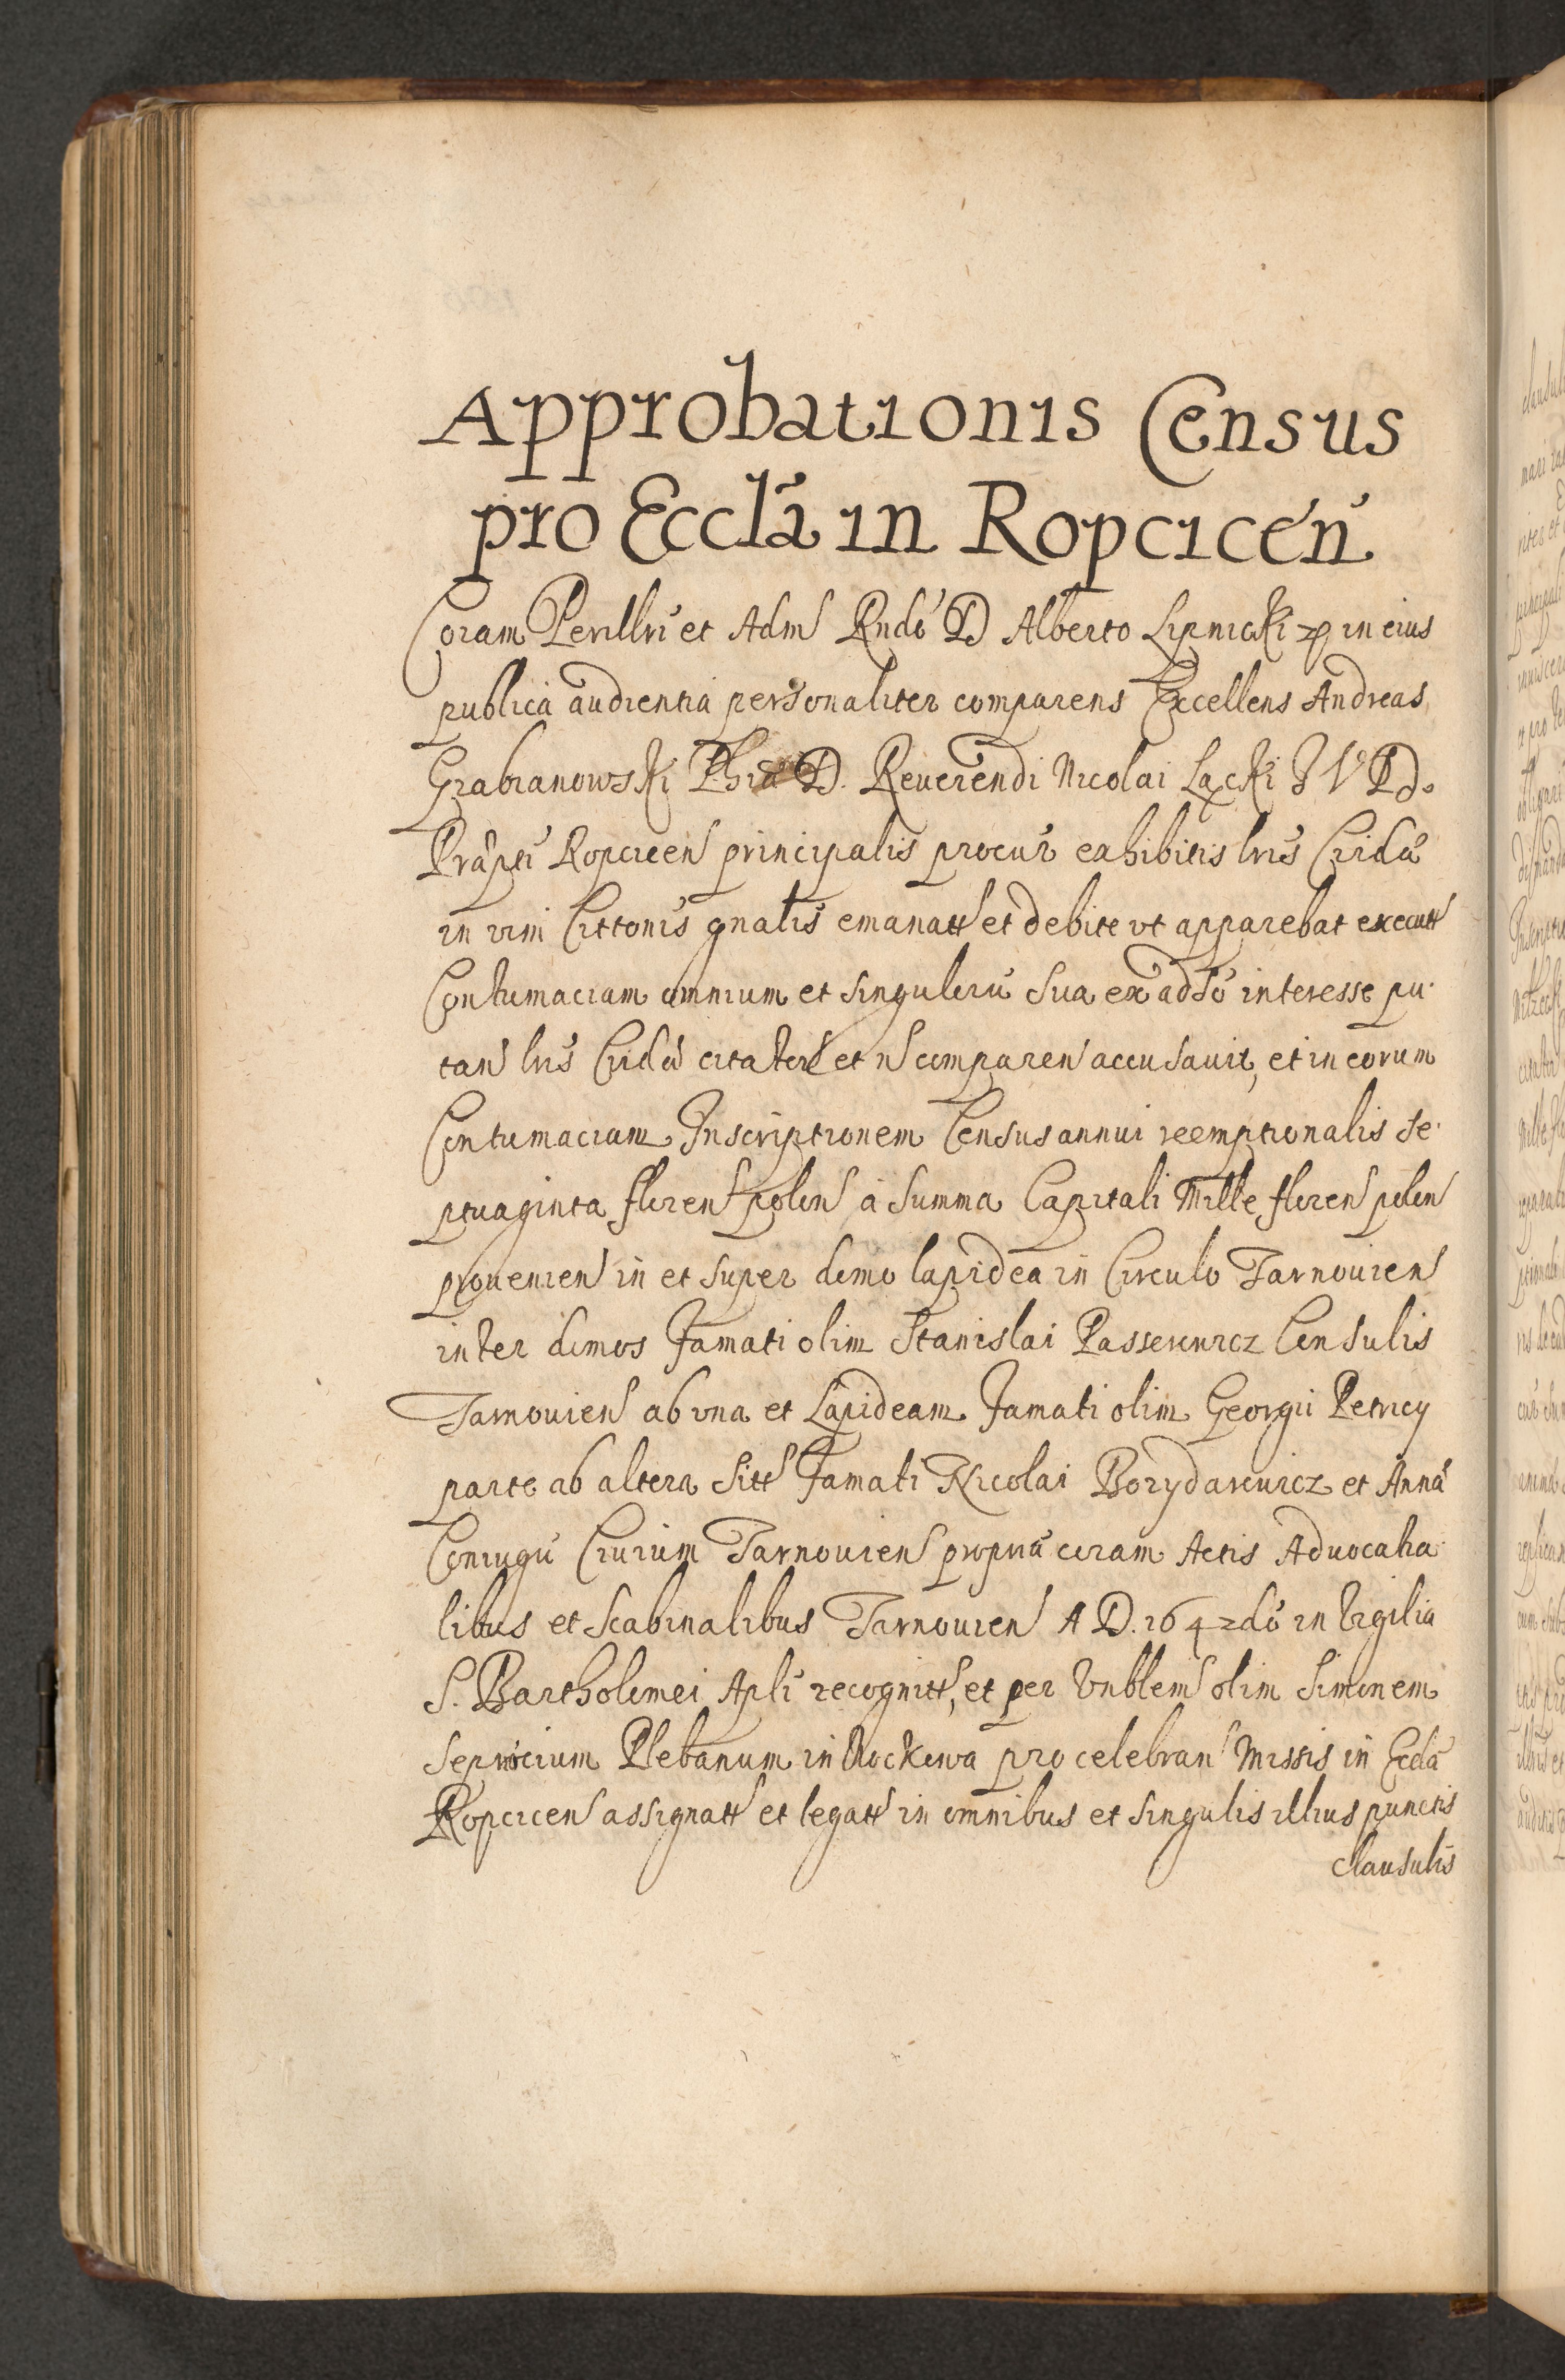 Approbationis Census
pro Ecclã in Ropcicen̄
Coram Perillri et Adm Rndo D Alberto Lipnicki in eius
publica audientia personaliter comparens Excellens Andreas
Grabianowski Phia D. Reuerendi Nicolai Łącki J V D
Præpti Ropcicen principalis procur exhibitis lris Cridæ
in vim Cittonis gnalis emanatt et debite vt apparebat executt
Contumaciam omnium et singuloru sua ex adso interesse pu-
tan lris Cridæ citator et n comparen accusauit, et in eorum
Contumaciam Inscriptionem Census annui reemptionalis se-
ptuaginta floren polon á summa Capitali Mille floren polon
prouenien in et super domo lapidea in Circulo Tarnouien
inter domos famati olim Stanislai Passerowicz Consulis
Tarnouien ab vna et Lapideam famati olim Georgii Petricy
parte ab altera sitt famati Nicolai Bozydarowicz et Anna
Coniugu Ciuium Tarnouien propria coram Actis Aduocatia-
libus et Scabinalibus Tarnouien A D. 1642do in Vigilia
S. Bartholomei Apli recognitt, et per Vnblem olim Simonem
Plebanum in pro celebran Missis in Eccla
Ropcicen assignatt et legatt in omnibus et singulis illius punctis
clausulis